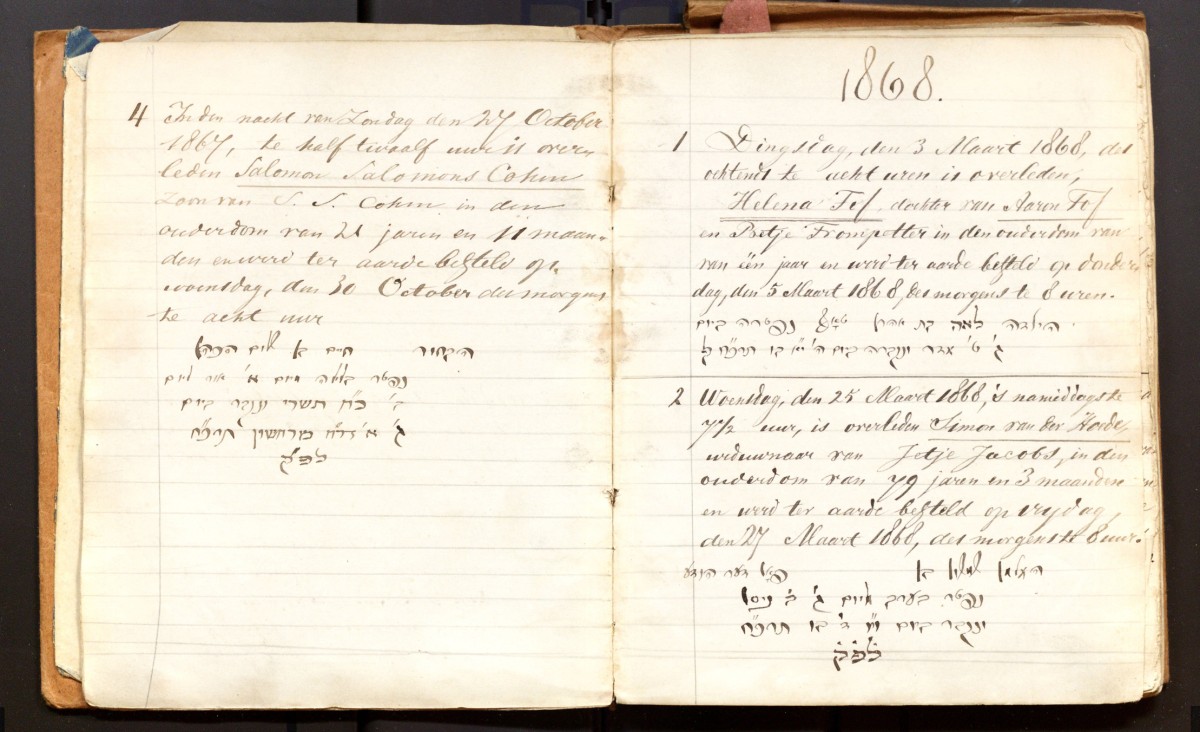 4 In den nacht van Zondag den 27 October
1867, te half twaalf uur is over-
leden Salomon Salomons Cohen
Zoon van S. S. Cohen in den
ouderdom van 21 jaren en 11 maan-
den en werd ter aarde besteld op
woensdag, den 30 October des morgens
te acht uur
הבחור חיים בן שלום הכהן
נפטר בלילה מיום א׳ אור ליום
ב׳ כ״ח תשרי ונקבר ביום
ג׳ א׳ דר״ח מרחשון תרכ״ח
לפ״ק
1868.
1 Dingsdag, den 3 Maart 1868, des
ochtends te acht uren is overleden,
Helena Fes, dochter van Aaron Fes
en Betje Trompetter in den ouderdom van
van één jaar en werd ter aarde besteld op donder-
dag, den 5 Maart 1868, des morgens te 8 uren.
הילדה לאה בת אהרן נפטרה ביום
ג׳ ט׳ אדר ונקברה ביום ה׳ י״א בו תרכ״ח ל
2 Woensdag, den 25 Maart 1868, 's namiddags te
7½ uur, is overleden Simon van der Horde,
weduwnaar van Jetje Jacobs, in den
ouderdom van 79 jaren en 3 maanden
en werd ter aarde besteld op vrydag,
den 27 Maart 1868, des morgens te 8 uur.
האלמן בן דער
נפטר בערב מיום ג׳ ב׳ ניסן
ונקבר ביום ו׳ ד׳ בו תרכ״ח
לפ״ק